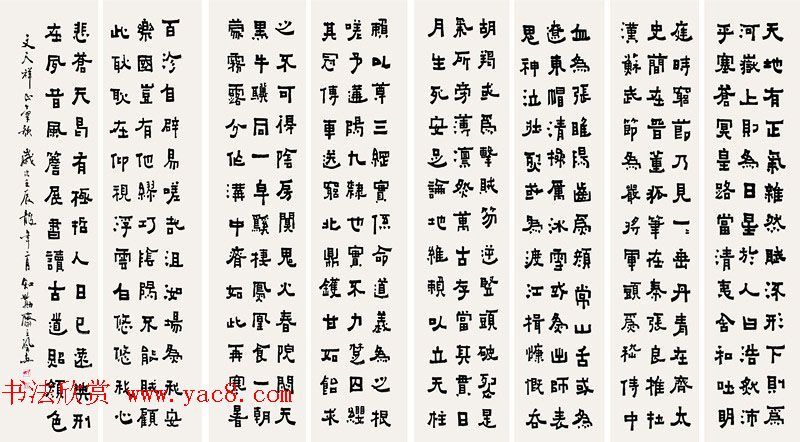 天地有正氣雜然賦流形下則為
河嶽上則為日星於人曰浩然沛
乎塞蒼冥皇路當清夷含和吐明
庭時窮節乃見一一垂丹青在齊太
史簡在晉董狐筆在秦張良椎在
漢蘇武節為嚴將軍頭為嵇侍中
血為張睢陽齒為顏常山舌或為
遼東帽清操厲冰雪或為出師表
鬼神泣壯烈或為渡江楫慷慨吞
胡羯或為擊賊笏逆豎頭破裂是
氣所旁薄凜然萬古存當其貫日
月生死安足論地維賴以立天柱
賴以尊三綱實係命道義為之根
嗟予遘陽九隸也實不力楚囚纓
其冠傳車送窮北鼎鑊甘如飴求
之不可得陰房闃鬼火春院閟天
黑牛驥同一皁雞棲鳳凰食一朝
蒙霧露分作溝中瘠如此再寒暑
百沴自辟易嗟哉沮洳場為我安
樂國豈有他繆巧陰陽不能賊顧
此耿耿在仰視浮雲白悠悠我心
悲蒼天曷有極哲人日已遠典刑
在夙昔風簷展書讀古道照顏色
文天祥正氣歌 歲次壬辰龍年
书法欣赏 www.yac8.com